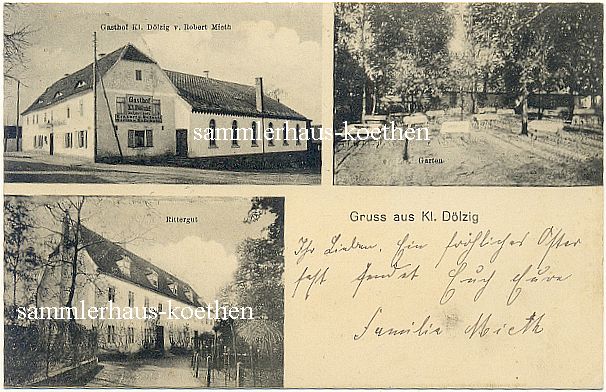 Gasthof Kl. Dölzig v. Robert Mieth
Gasthof
Kl. Dölzig
sammlerhaus-koethen
Garten
Rittergut
sammlerhaus-koethen
Gruss aus Kl. Dölzig
Ihr Lieben. Ein fröhliches Oster
fest sendet Euch Eure
Familie Mieth